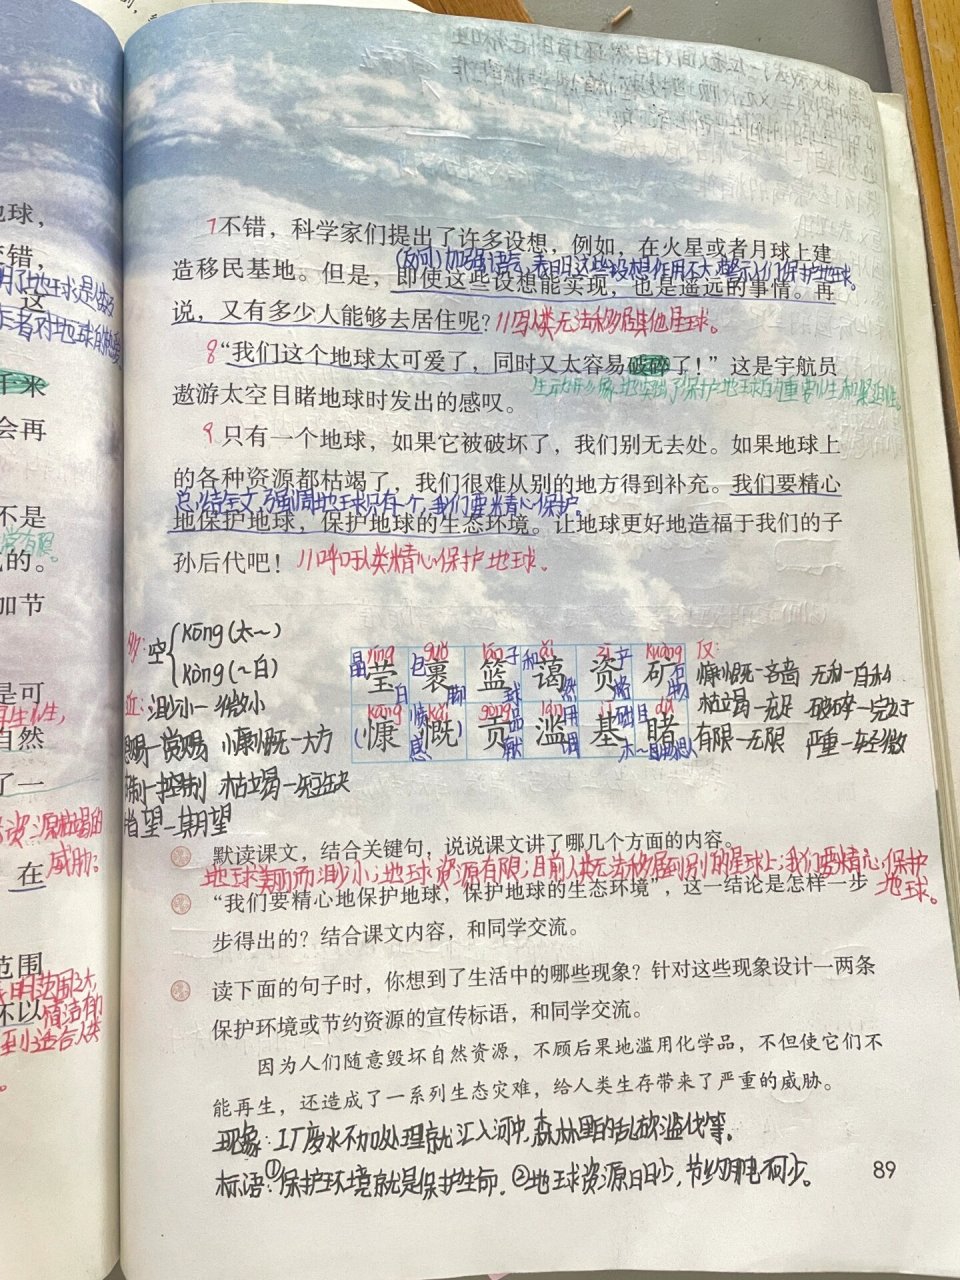 球，
错，
这
千米
会再
不是
的。
加节
是可
自然
了一
在
范围
不以
7不错，科学家们提出了许多设想，例如，在火星或者月球上建
(反问)加强语气，表明这些设想作用不大，警示人们保护地球。
造移民基地。但是，即使这些设想能实现，也是遥远的事情。再
说，又有多少人能够去居住呢？//写人类无法移居其他星球。
8“我们这个地球太可爱了，同时又太容易破碎了！”这是宇航员
生动形象地强调了保护地球的重要性和紧迫性。
遨游太空目睹地球时发出的感叹。
9只有一个地球，如果它被破坏了，我们别无去处。如果地球上
的各种资源都枯竭了，我们很难从别的地方得到补充。我们要精心
总结全文，强调地球只有一个，我们要精心保护。
地保护地球，保护地球的生态环境。让地球更好地造福于我们的子
孙后代吧！//呼吁人类精心保护地球。
空 kōng(太～)
kòng(～白)
近：渺小—微小
慷慨—大方
制—控制 枯竭—短缺
望—期望
晶莹 裹 篮 蔼 资 矿
慷 慨 贡 滥 基 睹
反：
慷慨—吝啬 无私—自私
枯竭—充足 破碎—完好
有限—无限 严重—轻微
默读课文，结合关键句，说说课文讲了哪几个方面的内容。
地球美丽而渺小；地球资源有限；目前人类无法移居到别的星球上；我们要精心保护
地球。
“我们要精心地保护地球，保护地球的生态环境”，这一结论是怎样一步
步得出的？结合课文内容，和同学交流。
读下面的句子时，你想到了生活中的哪些现象？针对这些现象设计一两条
保护环境或节约资源的宣传标语，和同学交流。
因为人们随意毁坏自然资源，不顾后果地滥用化学品，不但使它们不
能再生，还造成了一系列生态灾难，给人类生存带来了严重的威胁。
现象：工厂废水不加处理就汇入河中，森林里的乱砍滥伐等。
标语：①保护环境就是保护生命。②地球资源日日少，节约用电不可少。
89